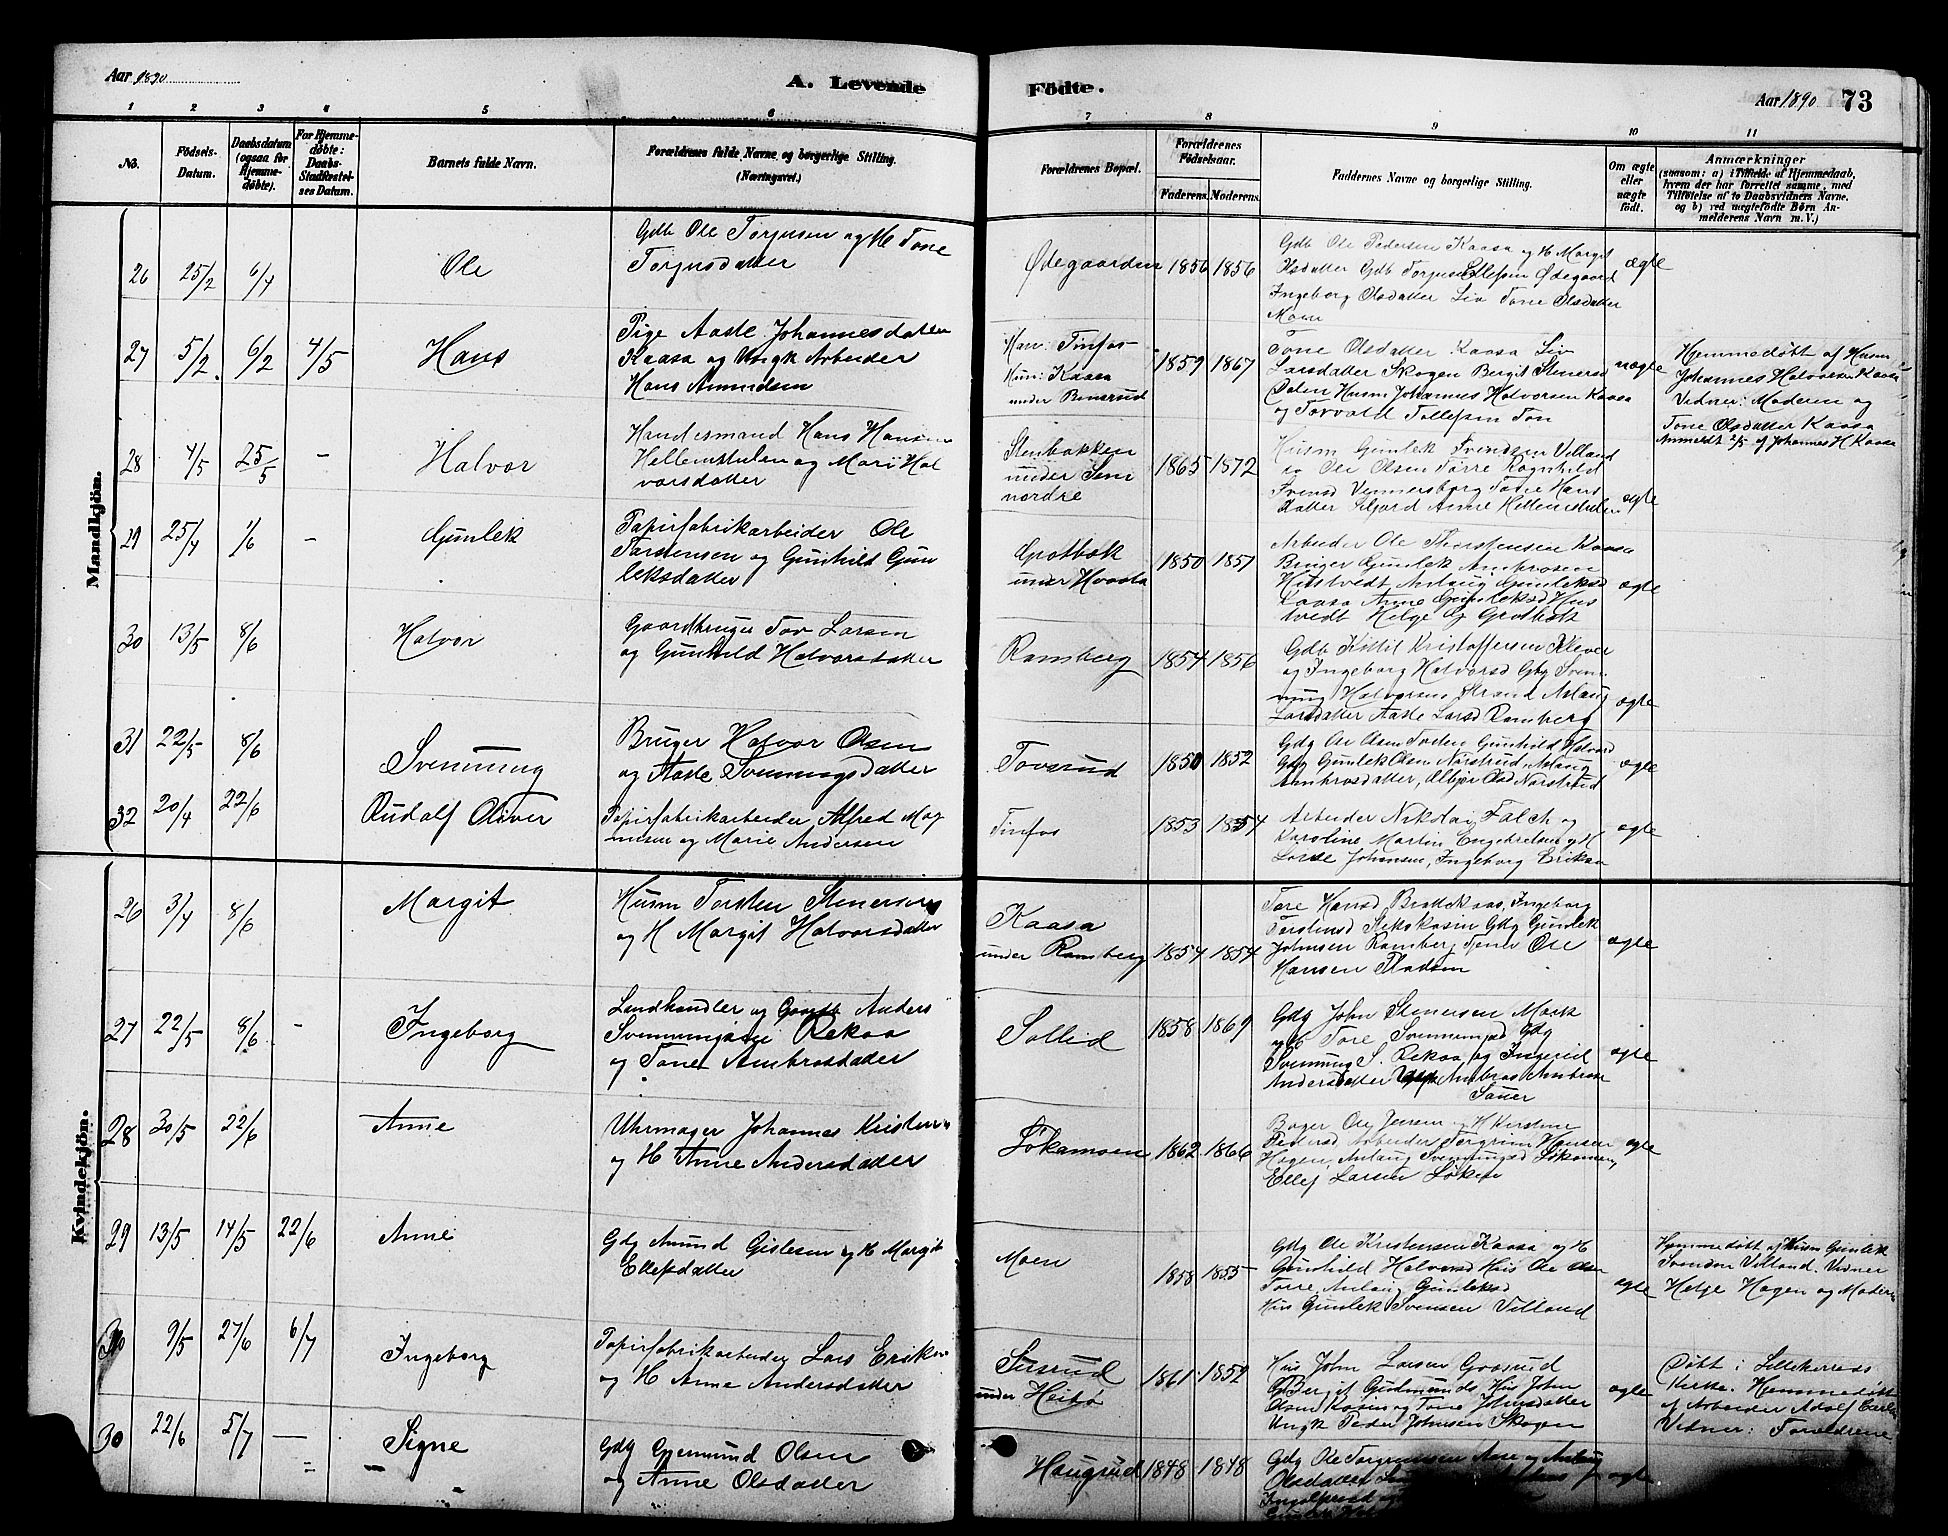 Aar 1890
A. Levende
Fødte.
Aar 1890
73
1 2 3 4 5 6 7 8 9 10 11
No.
Fødsels-
Datum.
Daabsdatum
(ogsaa for
Hjemme-
døbte).
For Hjemme-
døbte:
Daabs-
Stadfæstel-
ses Datum.
Barnets fulde Navn.
Forældrenes fulde Navne og borgerlige Stilling.
(Næringsvei.)
Forældrenes Bopæl.
Forældrenes
Fødselsaar.
Faderens. Moderens.
Faddernes Navne og borgerlige Stilling.
Om ægte
eller
uægte
født.
Anmærkninger
(saasom: a) i Tilfælde af Hjemmedaab,
hvem der har forrettet samme, med
Tilføielse af to Daabsvidners Navne.
og b) ved uægtefødte Børn An-
melderens Navn m. V.)
Mandkjøn.
26 25/2 6/4 Ole
Gdb Ole Torjusen og H Tone
Torjusdatter
Ødegaarden 1856 1856
Gdb Ole Pedersen Kaasa og H Margit
Olsdatter Gdb Torjus Ellefsen Ødegaard
Ingeborg Olsdatter Liv Tone Olsdatter
Moen
ægte
27 5/2 6/2 4/5 Hans
Pige Aaste Johannesdatter
Kaasa og Ungk Arbeider
Hans Amundsen
Han: Tinfos
Hun: Kaasa
under Bensrud
1859 1867
Tone Olsdatter Kaasa Liv
Larsdatter Skogen Bergit Stenersd
Dalen Husm Johannes Halvorsen Kaasa
og Torvald Tollefsen Ton
uægte
Hjemmedøbt af Husm
Johannes Halvorsen Kaasa
Vidner: Moderen og
Tone Olsdatter Kaasa
Anmeldt 2/5 af Johannes H Kaasa
28 4/5 25/5 - Halvor
Handesmand Hans Hansen
Hellemstulen og Mari Hal
vorsdatter
Stenbakken
under Sem
nordre
1865 1872
Husm Gunlek Svendsen Villand
Ole Olsen Torre Ragnhild
Svensd Vennersborg Todne Hans
datter Seljord Anne Hellemstulen
ægte
29 25/4 1/6 - Gunlek
Papirfabrikarbeider Ole
Torstensen og Gunhild Gun
leksdatter
Grotbæk
under Haasla
1850 1857
Arbeider Ole Thorstensen Kaasa
Bruger Gunlek Ambrosen
Hustvedt Aslaug Gunleksd
Kaasa Anne Gunleksd Hus
tvedt Helge G Grotbæk
ægte
30 13/5 8/6 Halvor
Gaardbruger Tov Larsen
og Gunhild Halvorsdatter
Ramberg 1854 1856
Gdb Kittil Kristoffersen Klever
og Ingeborg Halvorsd Gbg Sven
nung Halvorsen Strand Aslaug
Larsdatter Aaste Larsd Ramberg
ægte
31 22/5 8/6 Svennung
Bruger Halvor Olsen
og Aaste Svenningsdatter
Tovsrud 1850 1852
Gdg Ole Olsen Gunhild Halvord
Gdg Gunlek Olsen Norstrud Aslaug
Ambrosdatter, Olsd Norstrud
ægte
32 20/4 22/6 Rudolf Oliver
Papirfabrikarbeider Alfred Mag
nusen og Marie Andersen
Tinfos 1853 1854
Arbeider Nikolai Falch og
Karoline Martin Engebretsen og H
Johansen, Ingeborg Eriksen
ægte
Kvindekjøn.
26 3/4 8/6 Margit
Husm Torsten Stenersen
og H Margit Halvorsdatter
Kaasa
under Ramberg
1854 1854
Tore Hansd Brattekaas, Ingeborg
Torstensd Gdg Gunlek
Johnsen Ramberg, Tjener Ole
Hansen Fladsen
ægte
27 22/5 8/6 - Ingeborg
Landhandler og Gaardb Anders
Svennungsen Rekaa
og Tone Ambrosdatter
Sollid 1858 1869
Gdg John Stenersen Mark
og H Tore Svennungsd Gdg
Svennung S. Rekaa og Ingerid
Andersdatter Ungk Ambros Ambros
Saner
ægte
28 30/5 22/6 Anne
Uhrmager Johannes Kristen
og H Anne Andersdatter
Løkamoen 1862 1866
Bager Ole Jensen og H Kirstine
Pedersd Arbeider Torgrim Hansen
Hagen, Aslaug Svennungsd Løkamoen,
Ellef Larsen Løken
ægte
29 13/5 14/5 22/6 Anne
Gdg Amund Gislesen og H Margit
Ellefsdatter
Moen 1858 1855
Gdg Ole Kristensen Kaasa og H
Gunhild Halvorsd Hus Ole Olsen
Torre Aslaug Gunleksd
Hus Gunlek Svensen Villand
ægte
Hjemmedøbt af Husm Gunlek
Svendsen Villand. Vidner
Helge Hagen og Moderen
30 9/5 27/6 6/7 Ingeborg
Papirfabrikarbeider Lars Eriksen
og H Anne Andersdatter
Sersrud
under Heibø
1861 1852
Hus John Larsen Graasund
Bergit Gudmunds Hus John
Olsen Kaasa og Tone Johnsdatter
Ungk Peder Johnsen Skogen
ægte
Døbt i Lilleherreds
Kirke. Hjemmedøbt
af Arbeider Adolf Carls
Vidner: Forældrene
30 22/6 5/7 — Signe
Gdg Gjermund Olsen
og Anne Olsdatter
Haugrud 1848 1848
Gdg Ole Torgrimsen Aase og Aslaug
Olsdatter
ægte